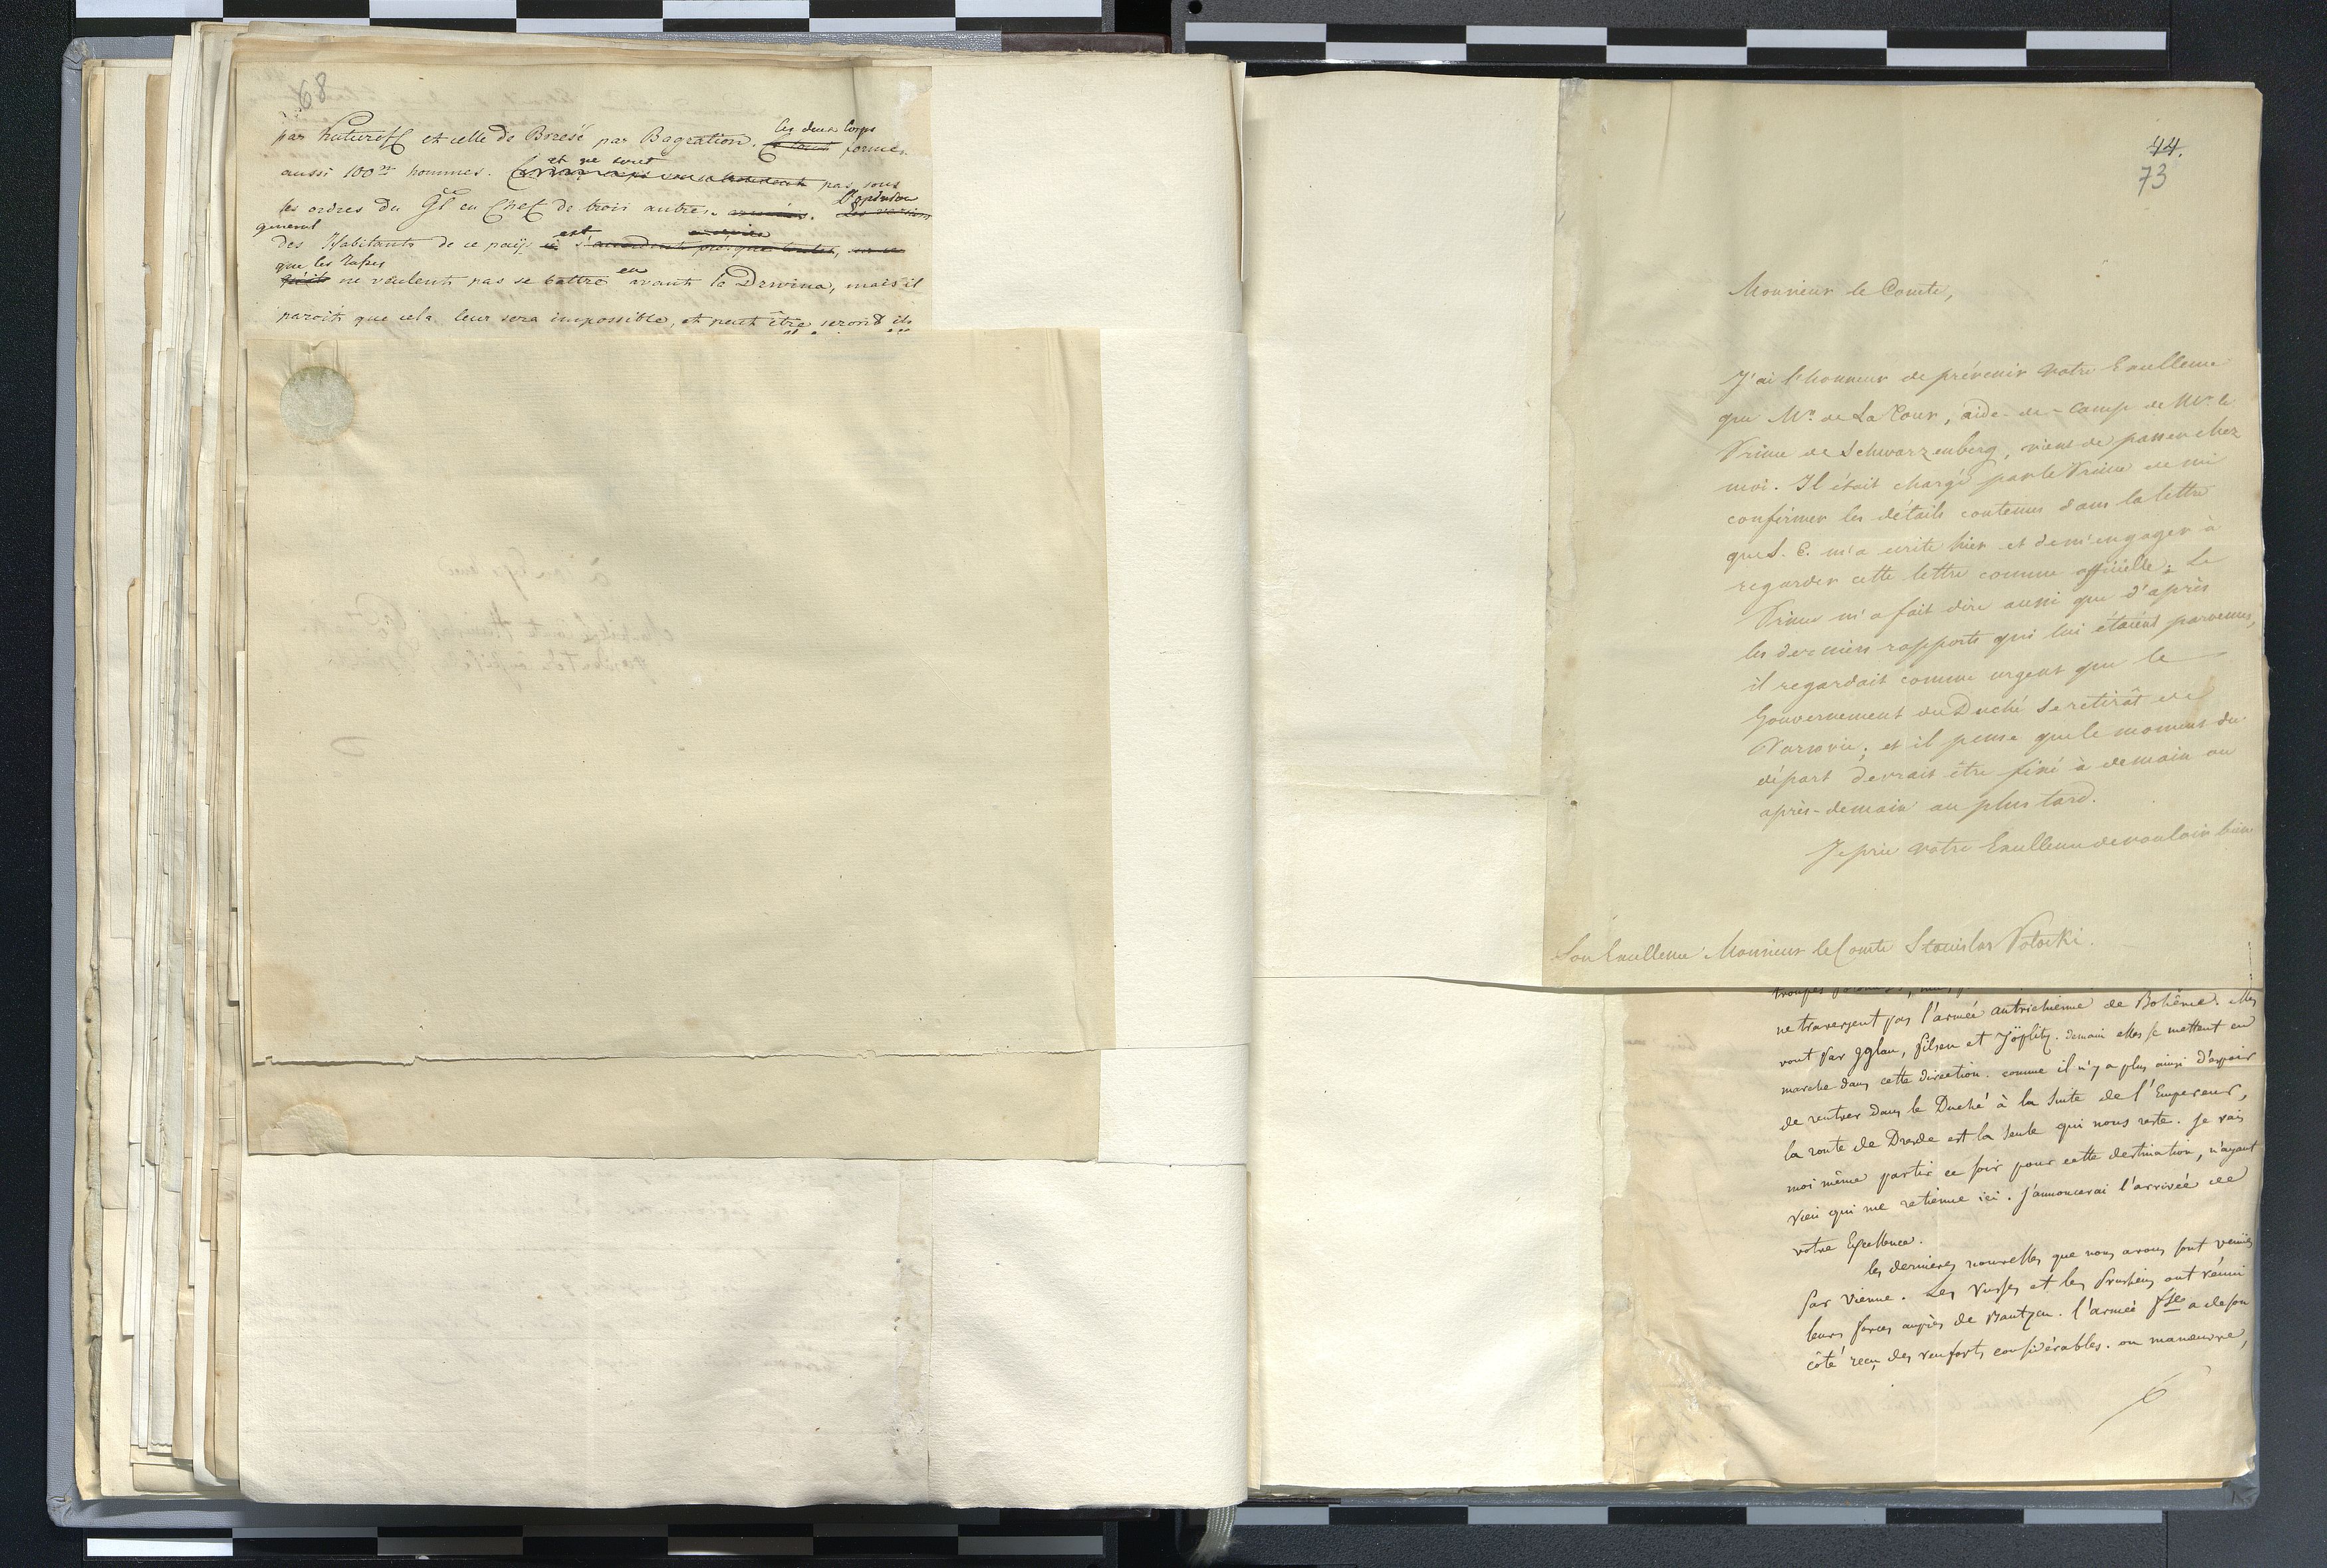 68
les deux Corps
par Kutuzoff et celle de Brzesc par Bagration. forment
aussi 100m hommes. et ne sont pas sous
les ordres du Gl en Chef de trois autres. L'opinion
general
des Habitants de ce pays est
que les Russes
ne veulent pas se battre en avant la Drwina, mais il
paroit que cela leur sera impossible, et peut être seront ils
44.
73
Monsieur le Comte,
J'ai l'honneur de prévenir Votre Excellence
que Mr. de La Tour, aide-de-Camp de Mr. le
Prince de Schwarzenberg, vient de passer chez
moi. Il était chargé par le Prince de me
confirmer les détails contenus dans la lettre
que S. E. m'a écrite hier et de m'engager à
regarder cette lettre comme officielle. Le
Prince m'a fait dire aussi que d'après
les derniers rapports qui lui étaient parvenus,
il regardait comme urgent que le
Gouvernement du Duché se retirât de
Varsovie; et il pense que le moment du
départ devrait être fixé à demain ou
après-demain au plus tard.
Je prie Votre Excellence de vouloir bien
Son Excellence Monsieur le Comte Stanislas Potocki.
ne traversent pas l'armée autrichienne de Bohême. Elles
vont par Iglau, Pilsen et Töplitz. demain elles se mettent en
marche dans cette direction. comme il n'y a plus ainsi d'espoir
de rentrer dans le Duché à la suite de l'Empereur,
la route de Dresde est la seule qui nous reste. Je vais
moi même partir ce soir pour cette destination, n'ayant
rien qui me retienne ici. J'annoncerai l'arrivée de
votre Excellence.
les dernieres nouvelles que nous avons sont venües
par Vienne. Les Russes et les Prussiens ont réuni
leurs forces auprès de Bautzen. l'armée fse a de son
côté reçu des renforts considérables. on manœuvre,